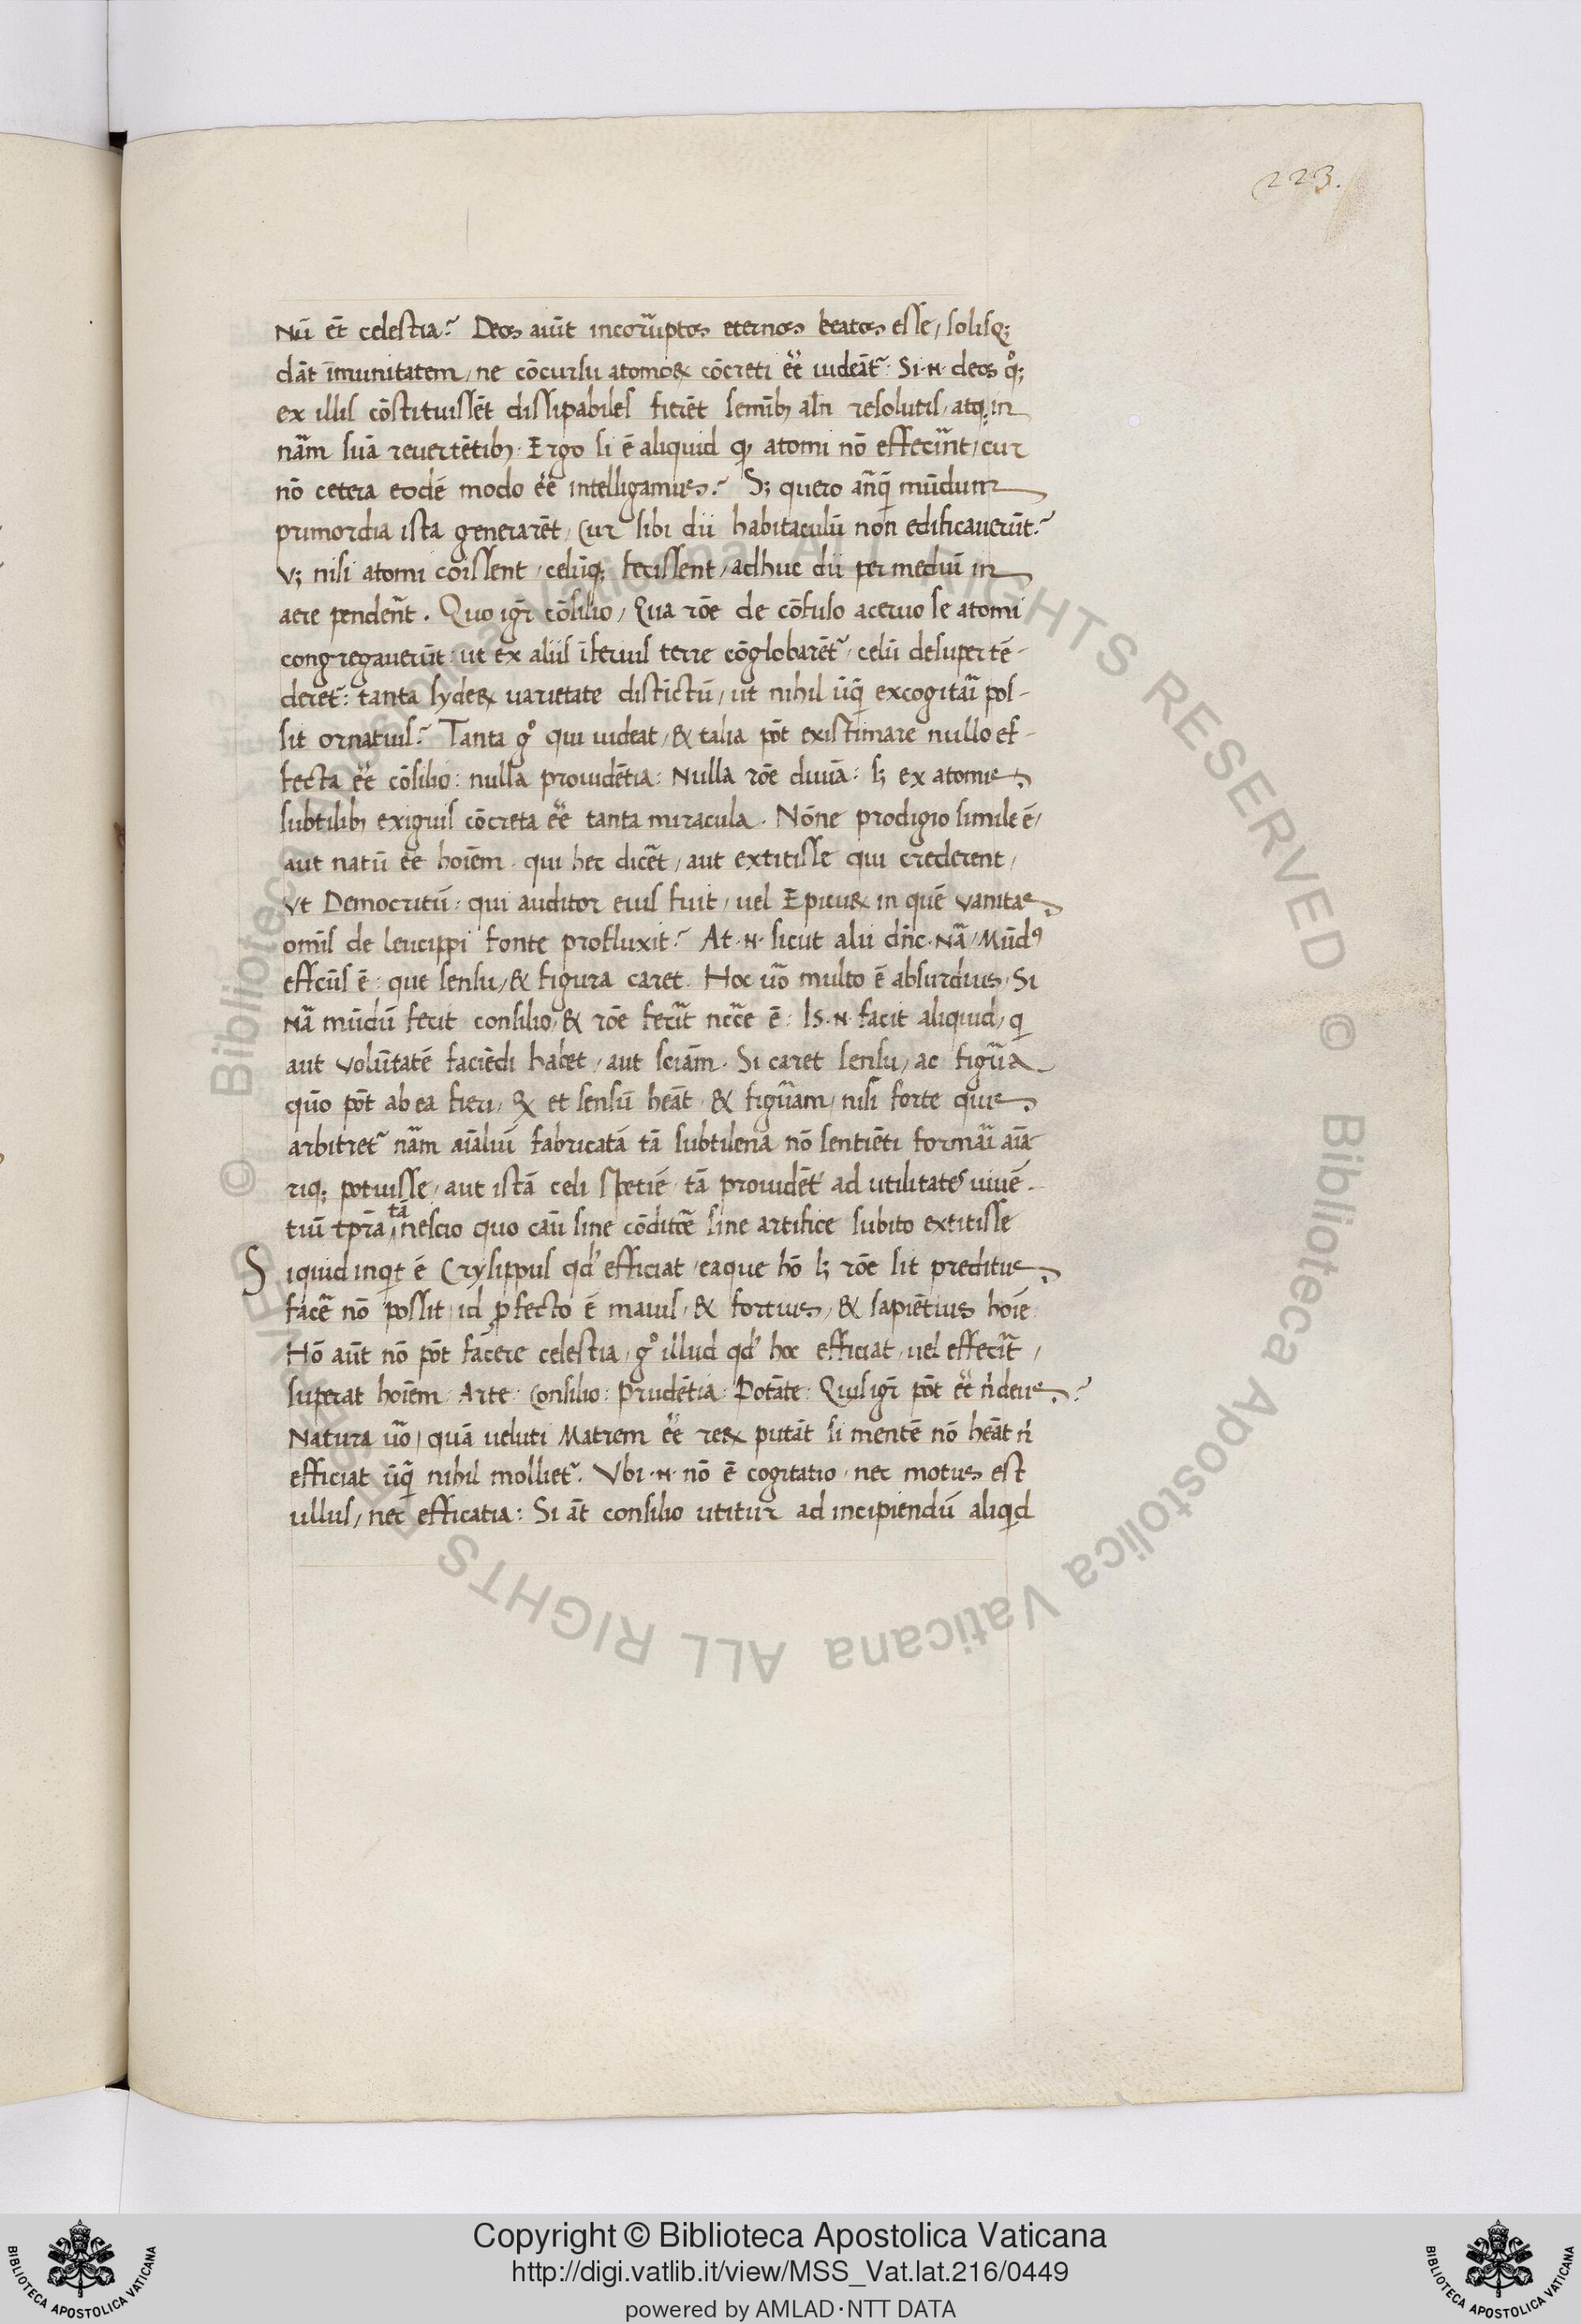 223.
Nū et̄ celestia? Deos aiūt incorruptos eternos beatos esse, solisq;
dāt īmunitatem, ne cōcursu atomoꝝ cōcreti eē uideāt᷑: Si .N. deos qͦ;
ex illis cōstituissēt dissipabiles fierēt semīb; aln̄ resolutis, atq; in
nām suā reuertētib;. Ergo si ē aliquid qꝫ atomi nō effecer̄nt, cur
nō cetera eodē modo eē intelligamus? S; quero anq̄ mūdum
primordia ista generarēt, Cur sibi dii habitaculū non edificauerūt?
V; nisi atomi coissent, celūq; fecissent, adhuc dii per mediū in
aere penden̄t. Quo igr̄ cōsilio, Qua rōe de cōfuso aceruo se atomi
congregauerūt: ut ex aliis īferius terre cōglobarēt᷑, celū desuper tē-
deret᷑: tanta syderꝝ uarietate distīctū, ut nihil ūq̄ excogitaī pos-
sit ornatius? Tanta gͦ qui uideat, & talia pōt existimare nullo ef-
fecta eē cōsilio: nulla prouidētia: Nulla rōe diuīa: s; ex atomis
subtilib; exiguis cōcreta eē tanta miracula. Nōne prodigio simile ē,
aut natū eē hoiēm. qui hec dicēt, aut extitisse qui crederent,
Vt Democritū: qui auditor eius fuit, uel Epicuꝝ in quē vanitas
omīs de leucippi fonte profluxit? At .N. sicut alii dn̄c. Nā, Mūdꝰ
effcūs ē: que sensu, & figura caret. Hoc ūo multo ē absurdius. Si
Nā mūdū fecit consilio, & rōe fecīt ncc̄e ē: Is .N. facit aliquid, q̄
aut volūtatē faciēdi habet, aut sciām. Si caret sensu, ac figūa
quō pōt ab ea fieri, ꝙ et sensū heāt. & figūam, nisi forte quis
arbitret᷑ nām aiāliū fabricatā tā subtilem nō sentiēti formaī aiā
riq; potuisse, aut istā celi spetiē tā prouidēt᷑ ad utilitatē uiuē-
tiū tpr̄a tā nescio quo caū sine cōditēe sine artifice subito extitisse
Siquid inqt ē Crysippus qd' efficiat, eaque hō l; rōe sit preditus
facē nō possit, id ꝓfecto ē maius, & fortius, & sapiētius hoīe.
Hō aūt nō pōt facere celestia, gͦ illud qd' hoc efficiat, uel effecīt,
superat hoiēm: Arte: Consilio: Prudētia: Potāte: Quis igr̄ pōt eē n̄ deus?
Natura ūo, quā ueluti Matrem eē reꝝ putāt si mentē nō heāt n̄
efficiat ūq̄ nihil molliet᷑. Vbi .N. nō ē cogitatio, nec motus est
ullus, nec efficatia: Si āt consilio utitur ad incipiendū aliqd
© Biblioteca Apostolica Vaticana ALL RIGHTS RESERVED © Biblioteca Apostolica Vaticana ALL RIGHTS RESERVED
BIBLIOTECA APOSTOLICA VATICANA
Copyright © Biblioteca Apostolica Vaticana
http://digi.vatlib.it/view/MSS_Vat.lat.216/0449
powered by AMLAD·NTT DATA
BIBLIOTECA APOSTOLICA VATICANA